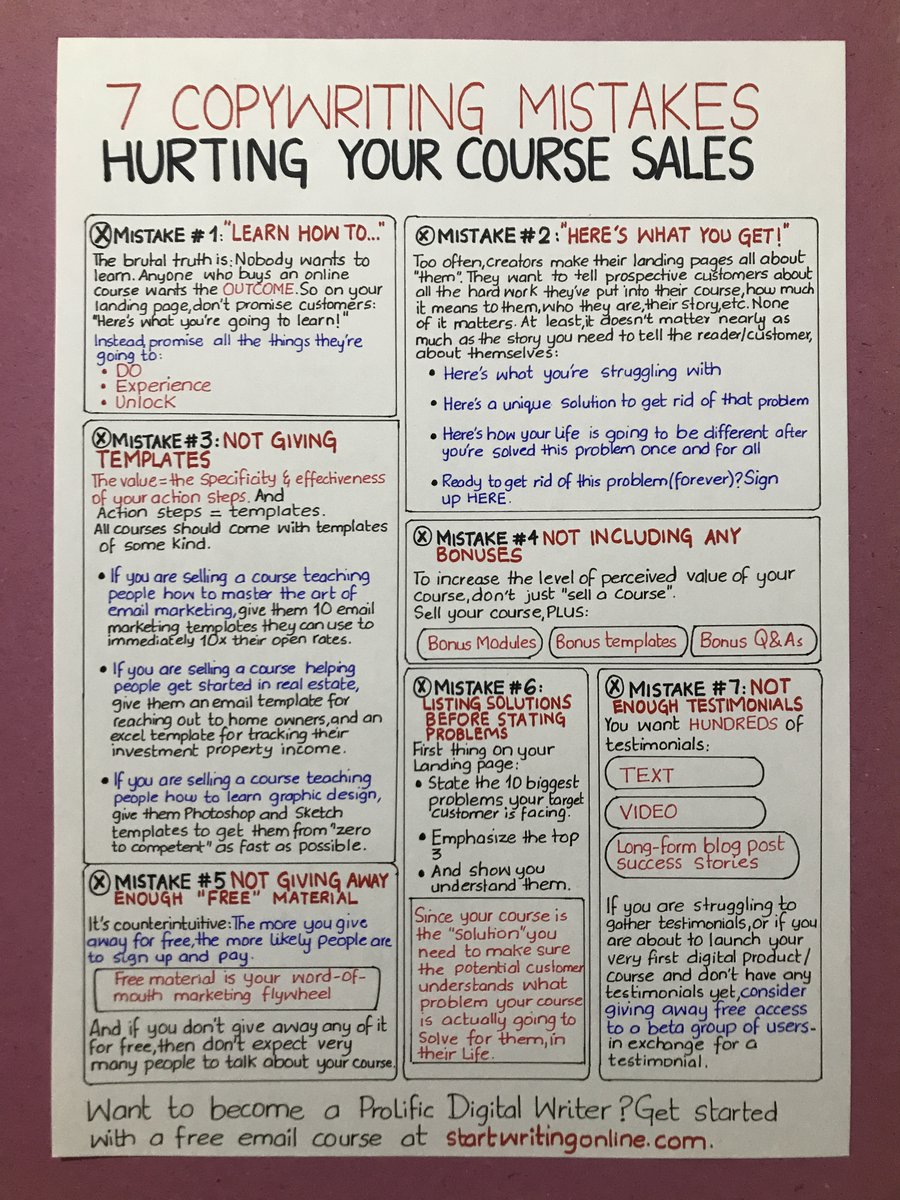 7 COPYWRITING MISTAKES
HURTING YOUR COURSE SALES
MISTAKE #1: "LEARN HOW TO..."
The brutal truth is: Nobody wants to
learn. Anyone who buys an online
course wants the OUTCOME. So on your
landing page, don't promise customers:
"Here's what you're going to learn!"
Instead, promise all the things they're
going to:
• DO
• Experience
• Unlock
MISTAKE #2: "HERE'S WHAT YOU GET!"
Too often, creators make their landing pages all about
"them". They want to tell prospective customers about
all the hard work they've put into their course, how much
it means to them, who they are, their story, etc. None
of it matters. At least, it doesn't matter nearly as
much as the story you need to tell the reader/customer,
about themselves:
• Here's what you're struggling with
• Here's a unique solution to get rid of that problem
• Here's how your life is going to be different after
you're solved this problem once and for all
• Ready to get rid of this problem (forever)? Sign
up HERE.
MISTAKE #3: NOT GIVING
TEMPLATES
The value = the specificity & effectiveness
of your action steps. And
Action steps = templates.
All courses should come with templates
of some kind.
• If you are selling a course teaching
people how to master the art of
email marketing, give them 10 email
marketing templates they can use to
immediately 10x their open rates.
• If you are selling a course helping
people get started in real estate,
give them an email template for
reaching out to home owners, and an
excel template for tracking their
investment property income.
• If you are selling a course teaching
people how to learn graphic design,
give them Photoshop and Sketch
templates to get them from "zero
to competent" as fast as possible.
MISTAKE #4 NOT INCLUDING ANY
BONUSES
To increase the level of perceived value of your
course, don't just "sell a course".
Sell your course, PLUS:
Bonus Modules
Bonus templates
Bonus Q&As
MISTAKE #5 NOT GIVING AWAY
ENOUGH "FREE" MATERIAL
It's counterintuitive: The more you give
away for free, the more likely people are
to sign up and pay.
Free material is your word-of-
mouth marketing flywheel
And if you don't give away any of it
for free, then don't expect very
many people to talk about your course.
MISTAKE #6:
LISTING SOLUTIONS
BEFORE STATING
PROBLEMS
First thing on your
Landing page:
• State the 10 biggest
problems your target
customer is facing.
• Emphasize the top
3
• And show you
understand them.
Since your course is
the "solution" you
need to make sure
the potential customer
understands what
problem your course
is actually going to
solve for them, in
their life.
MISTAKE #7: NOT
ENOUGH TESTIMONIALS
You want HUNDREDS of
testimonials:
TEXT
VIDEO
Long-form blog post
success stories
If you are struggling to
gather testimonials, or if you
are about to launch your
very first digital product/
course and don't have any
testimonials yet, consider
giving away free access
to a beta group of users-
in exchange for a
testimonial.
Want to become a Prolific Digital Writer? Get started
with a free email course at startwritingonline.com.